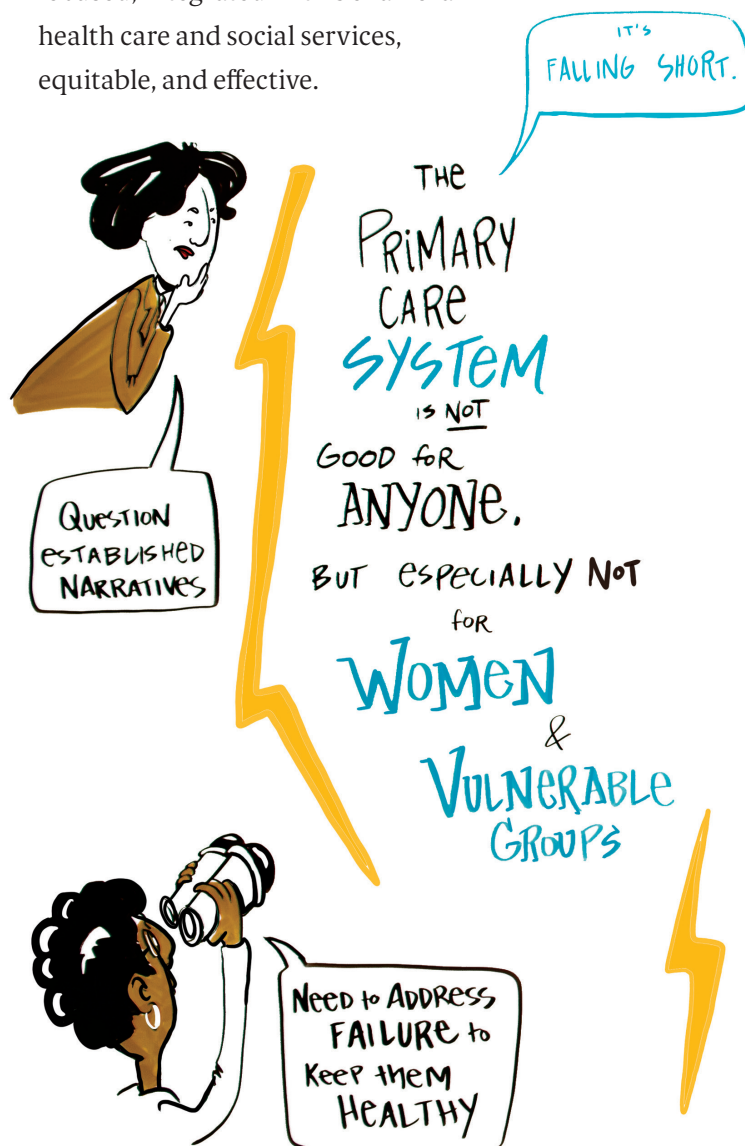 health care and social services,
equitable, and effective.
IT'S
FALLING SHORT.
THE
PRIMARY
CARE
SYSTEM
IS NOT
GOOD FOR
ANYONE.
BUT ESPECIALLY NOT
FOR
WOMEN
&
VULNERABLE
GROUPS
QUESTION
ESTABLISHED
NARRATIVES
NEED to ADDRESS
FAILURE to
KEEP them
HEALTHY